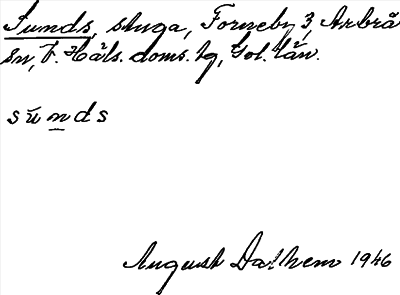 Sunds, stuga, Forneby 3, Arbrå
sn, V. Häls. doms. hg, Gvl. län.
sùnds
August Dalhem 1946